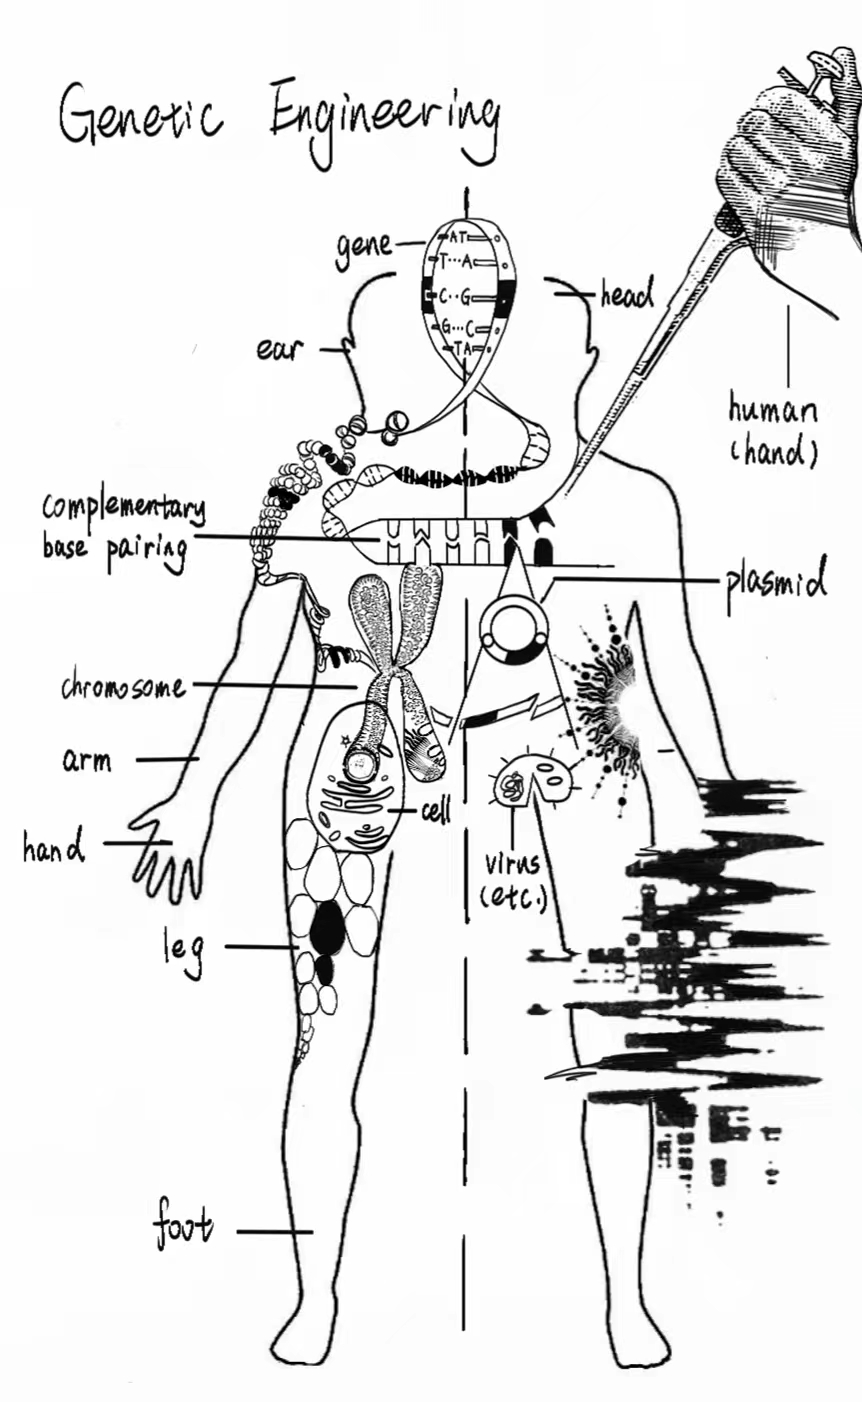 Genetic Engineering
gene
AT
T···A
C··G
G···C
TA
head
ear
human
(hand)
complementary
base pairing
plasmid
chromosome
arm
cell
hand
virus
(etc.)
leg
foot